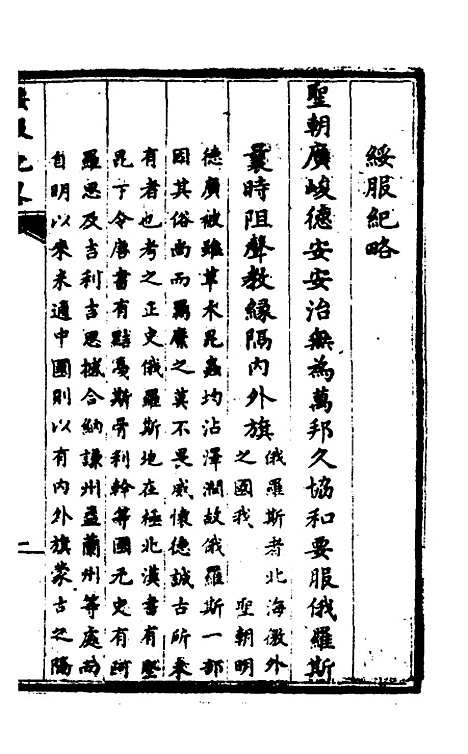 綏服紀略
聖朝廣峻德安安治無為萬邦久協和要服俄羅斯
曩時阻聲教緣隔內外旗
俄羅斯者北海徼外
之國我 聖朝明
德廣被雖草木昆蟲均沾澤潤故俄羅斯一部
因其俗尚而羈縻之莫不畏威懷德誠古所未
有者也考之正史俄羅斯地在極北漢書有堅
昆丁令唐書有黠戛斯骨利幹等國元史有阿
羅思及吉利吉思撼合納謙州益蘭州等處而
自明以來未通中國則以有內外旗蒙古之隔
二